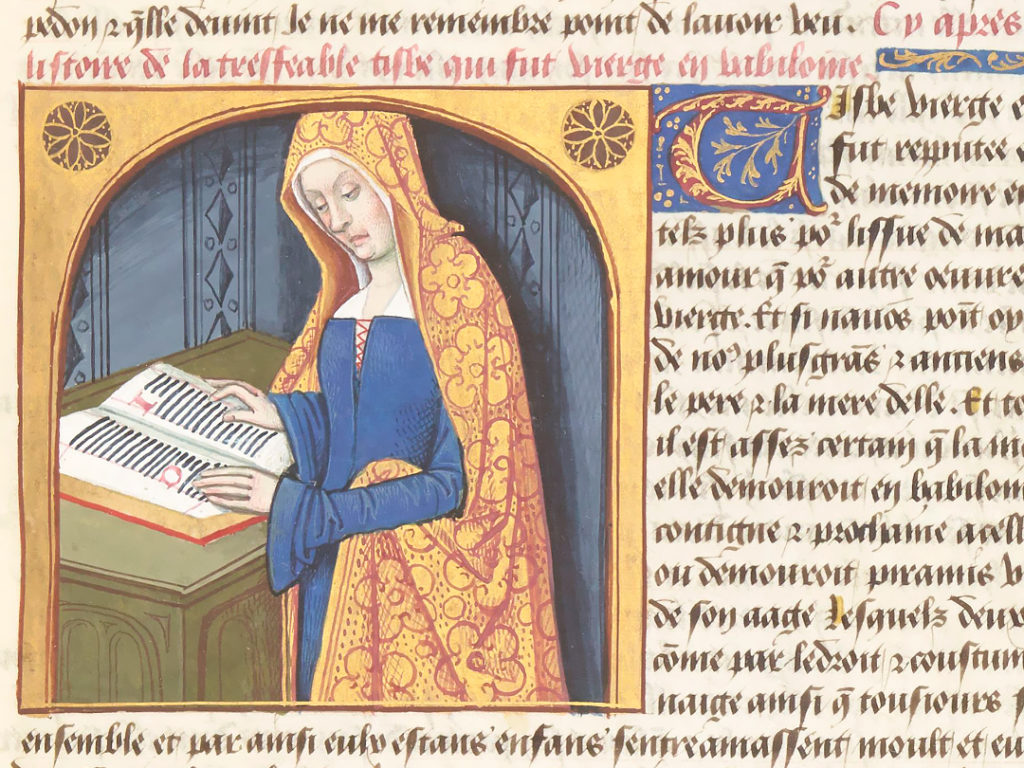 pedon ⁊ q̄lle deuint Je ne me remembre point de lauoir veu. Cy apres
listoire de la tresfeable tisbe qui fut vierge en babilonie.
Tisbe vierge
fut reputee
de memoire en
telz plus po᷒ lissue de ma
amour q̄ po᷒ autre oeuure
vierge. Et si nauōs point
de noz plusgrās ⁊ anciens
le pere ⁊ la mere delle. Et
il est assez certain q̄ la
elle demouroit en babilon
contigue ⁊ prochaine a cell
ou demouroit piramus
de son aage Lesquelz deux
cōme par ledroit ⁊ coustum
naige ainsi q̄ tousiours
ensemble et par ainsi eulx estans enfans sentreamassent moult et eu